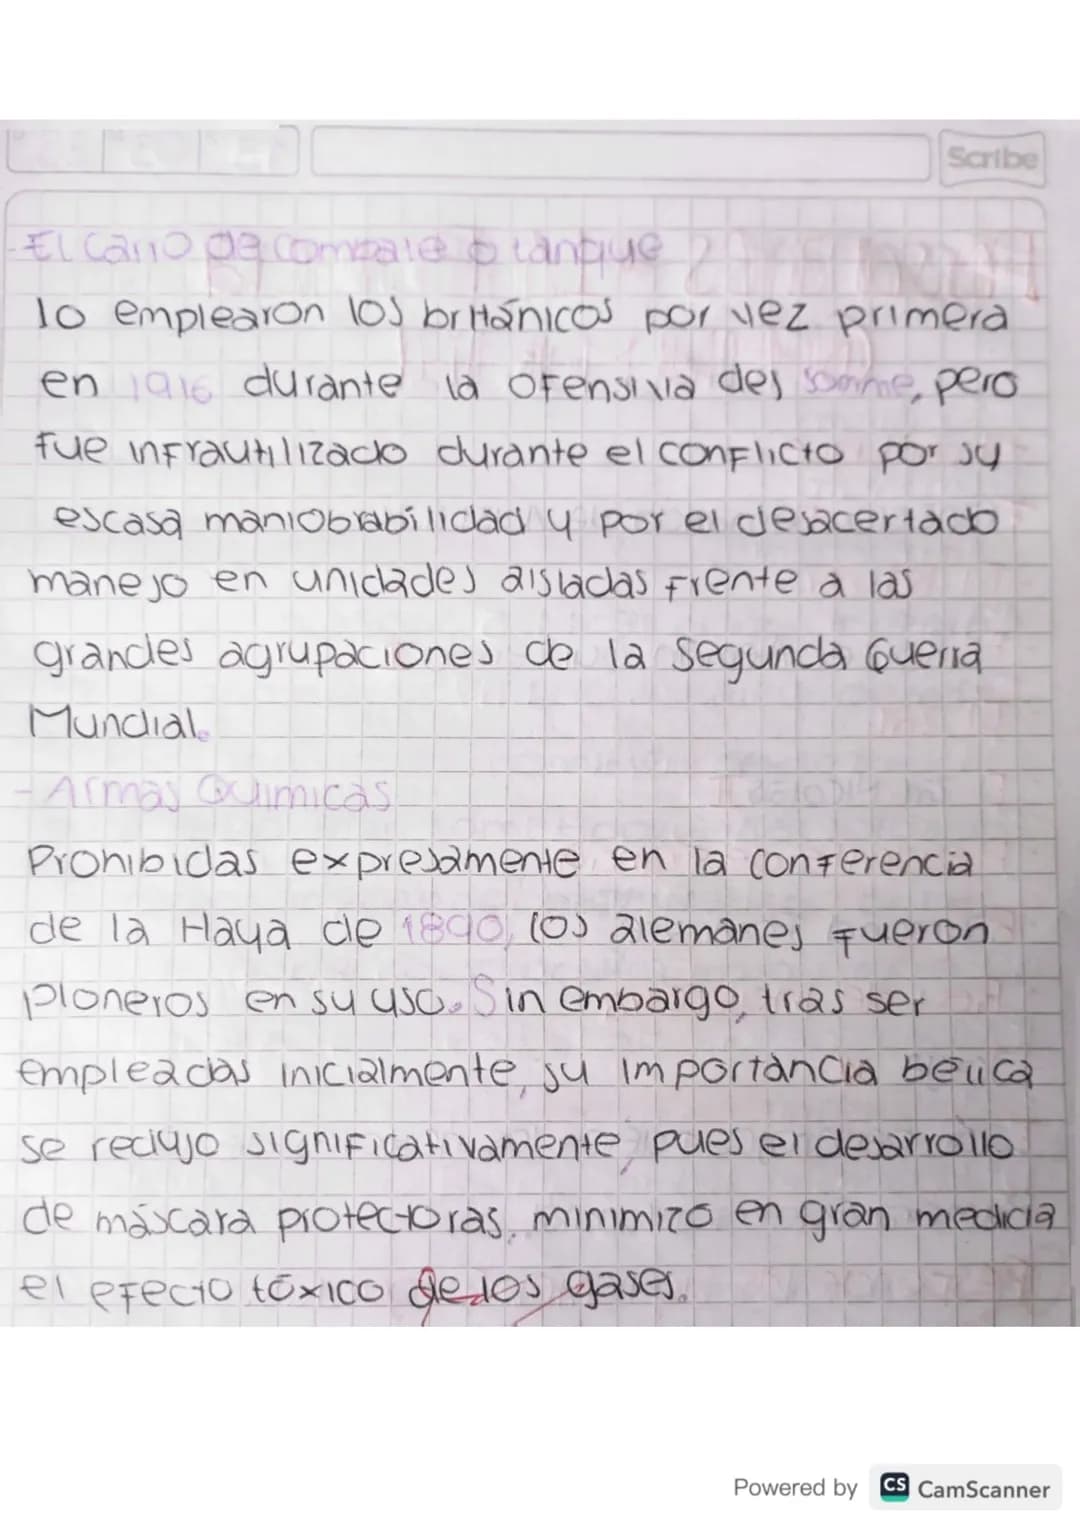 Scribe
-El Carro de combate o tanque
lo emplearon los británicos por vez primera
en 1916 durante la ofensiva des somme, pero
fue infrautilizado durante el conflicto por su
escasa maniobrabilidad y por el desacertado
manejo en unidades aisladas frente a las
grandes agrupaciones de la Segunda Guerra
Mundial.
- Armas Quimicas
Prohibidas expresamente en la conferencia
de la Haya de 1890, los alemanes fueron
pioneros en su uso. Sin embargo, tras ser
empleadas inicialmente, su importancia bélica
se redujo significativamente, pues el desarrollo
de máscara protectoras, minimizó en gran medida
el efecto tóxico de los gases.
Powered by CS CamScanner